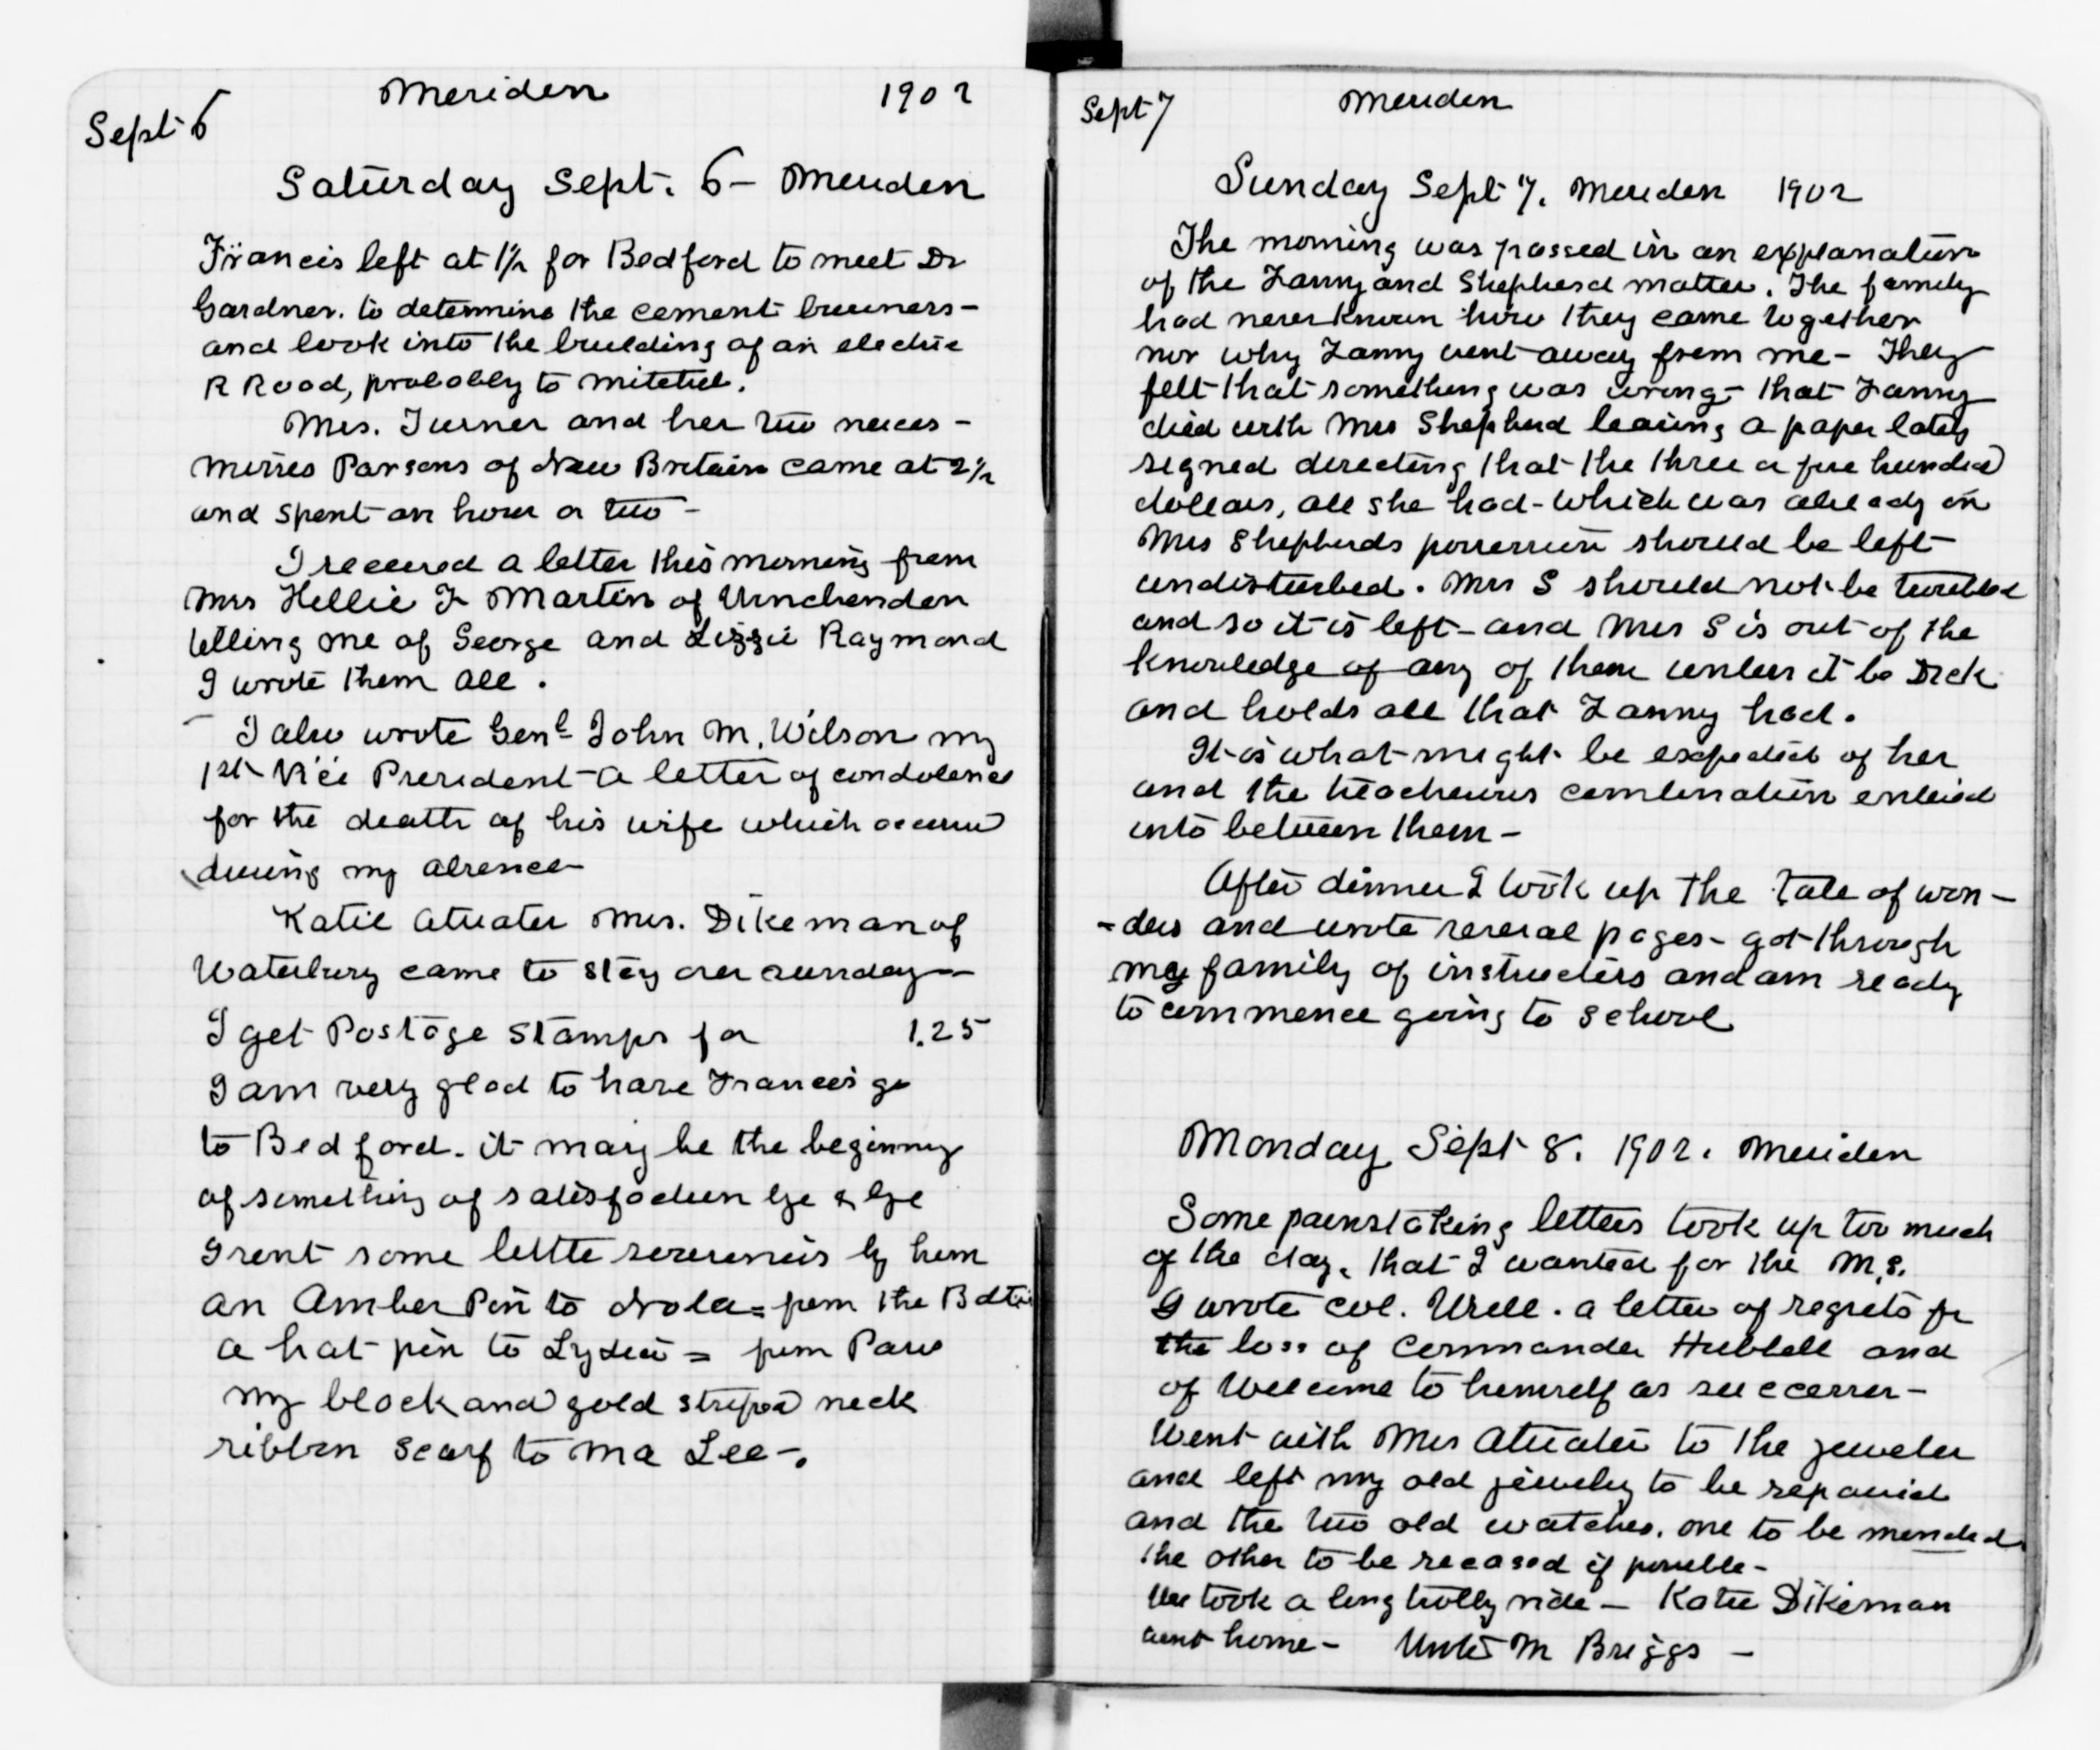 Meriden 1902
Sept 6
Saturday Sept. 6 - Meriden
Francis left at 1½ for Bedford to meet Dr
Gardner. to determine the cement business -
and look into the building of an electric
R Road, probably to Mitchel.
Mrs. Turner and her two nieces -
Misses Parsons of New Britain came at 2½
and spent an hour or two -
I received a letter this morning from
Mrs Hellie F Martin of Winchendon
telling me of George and Lizzie Raymond
I wrote them all.
I also wrote Genl John M. Wilson my
1st Vice President - a letter of condolence
for the death of his wife which occurred
during my absence -
Katie Atwater Mrs. Dikeman of
Waterbury came to stay over sunday -
I get Postage Stamps for 1.25
I am very glad to have Francis go
to Bedford. it may be the beginning
of something of satisfaction
I sent some little souvenirs by him
an Amber Pin to Nola = from the
a hat pin to Lydia = from Paris
my black and gold striped neck
ribbon scarf to Ma Lee -.
Sept 7 Meriden
Sunday Sept 7. Meriden 1902
The morning was passed in an explanation
of the Fanny and Shepherd matter. The family
had never known how they came together
nor why Fanny went away from me - They
felt that something was wrong - that Fanny
died with Mrs Shepherd leaving a paper lately
signed directing that the three or five hundred
dollars, all she had - which was already in
Mrs Shepherds possession should be left
undisturbed. Mrs S should not be troubled
and so it is left - and Mrs S is out of the
knowledge of any of them unless it be Dick
and holds all that Fanny had.
It is what might be expected of her
and the treacherous combination entered
into between them -
After dinner I took up the Tale of won -
- ders and wrote several pages - got through
my family of instructors and am ready
to commence going to school
Monday Sept 8. 1902. Meriden
Some painstaking letters took up too much
of the day, that I wanted for the M.S.
I wrote Col. Urell. a letter of regrets for
the loss of Commander Hubbell and
of Welcome to himself as successor -
Went with Mrs Atwater to the jeweler
and left my old jewelry to be repaired
and the two old watches. one to be mended
the other to be recased if possible -
We took a long trolly ride - Katie Dikeman
went home - Wrote M Briggs -